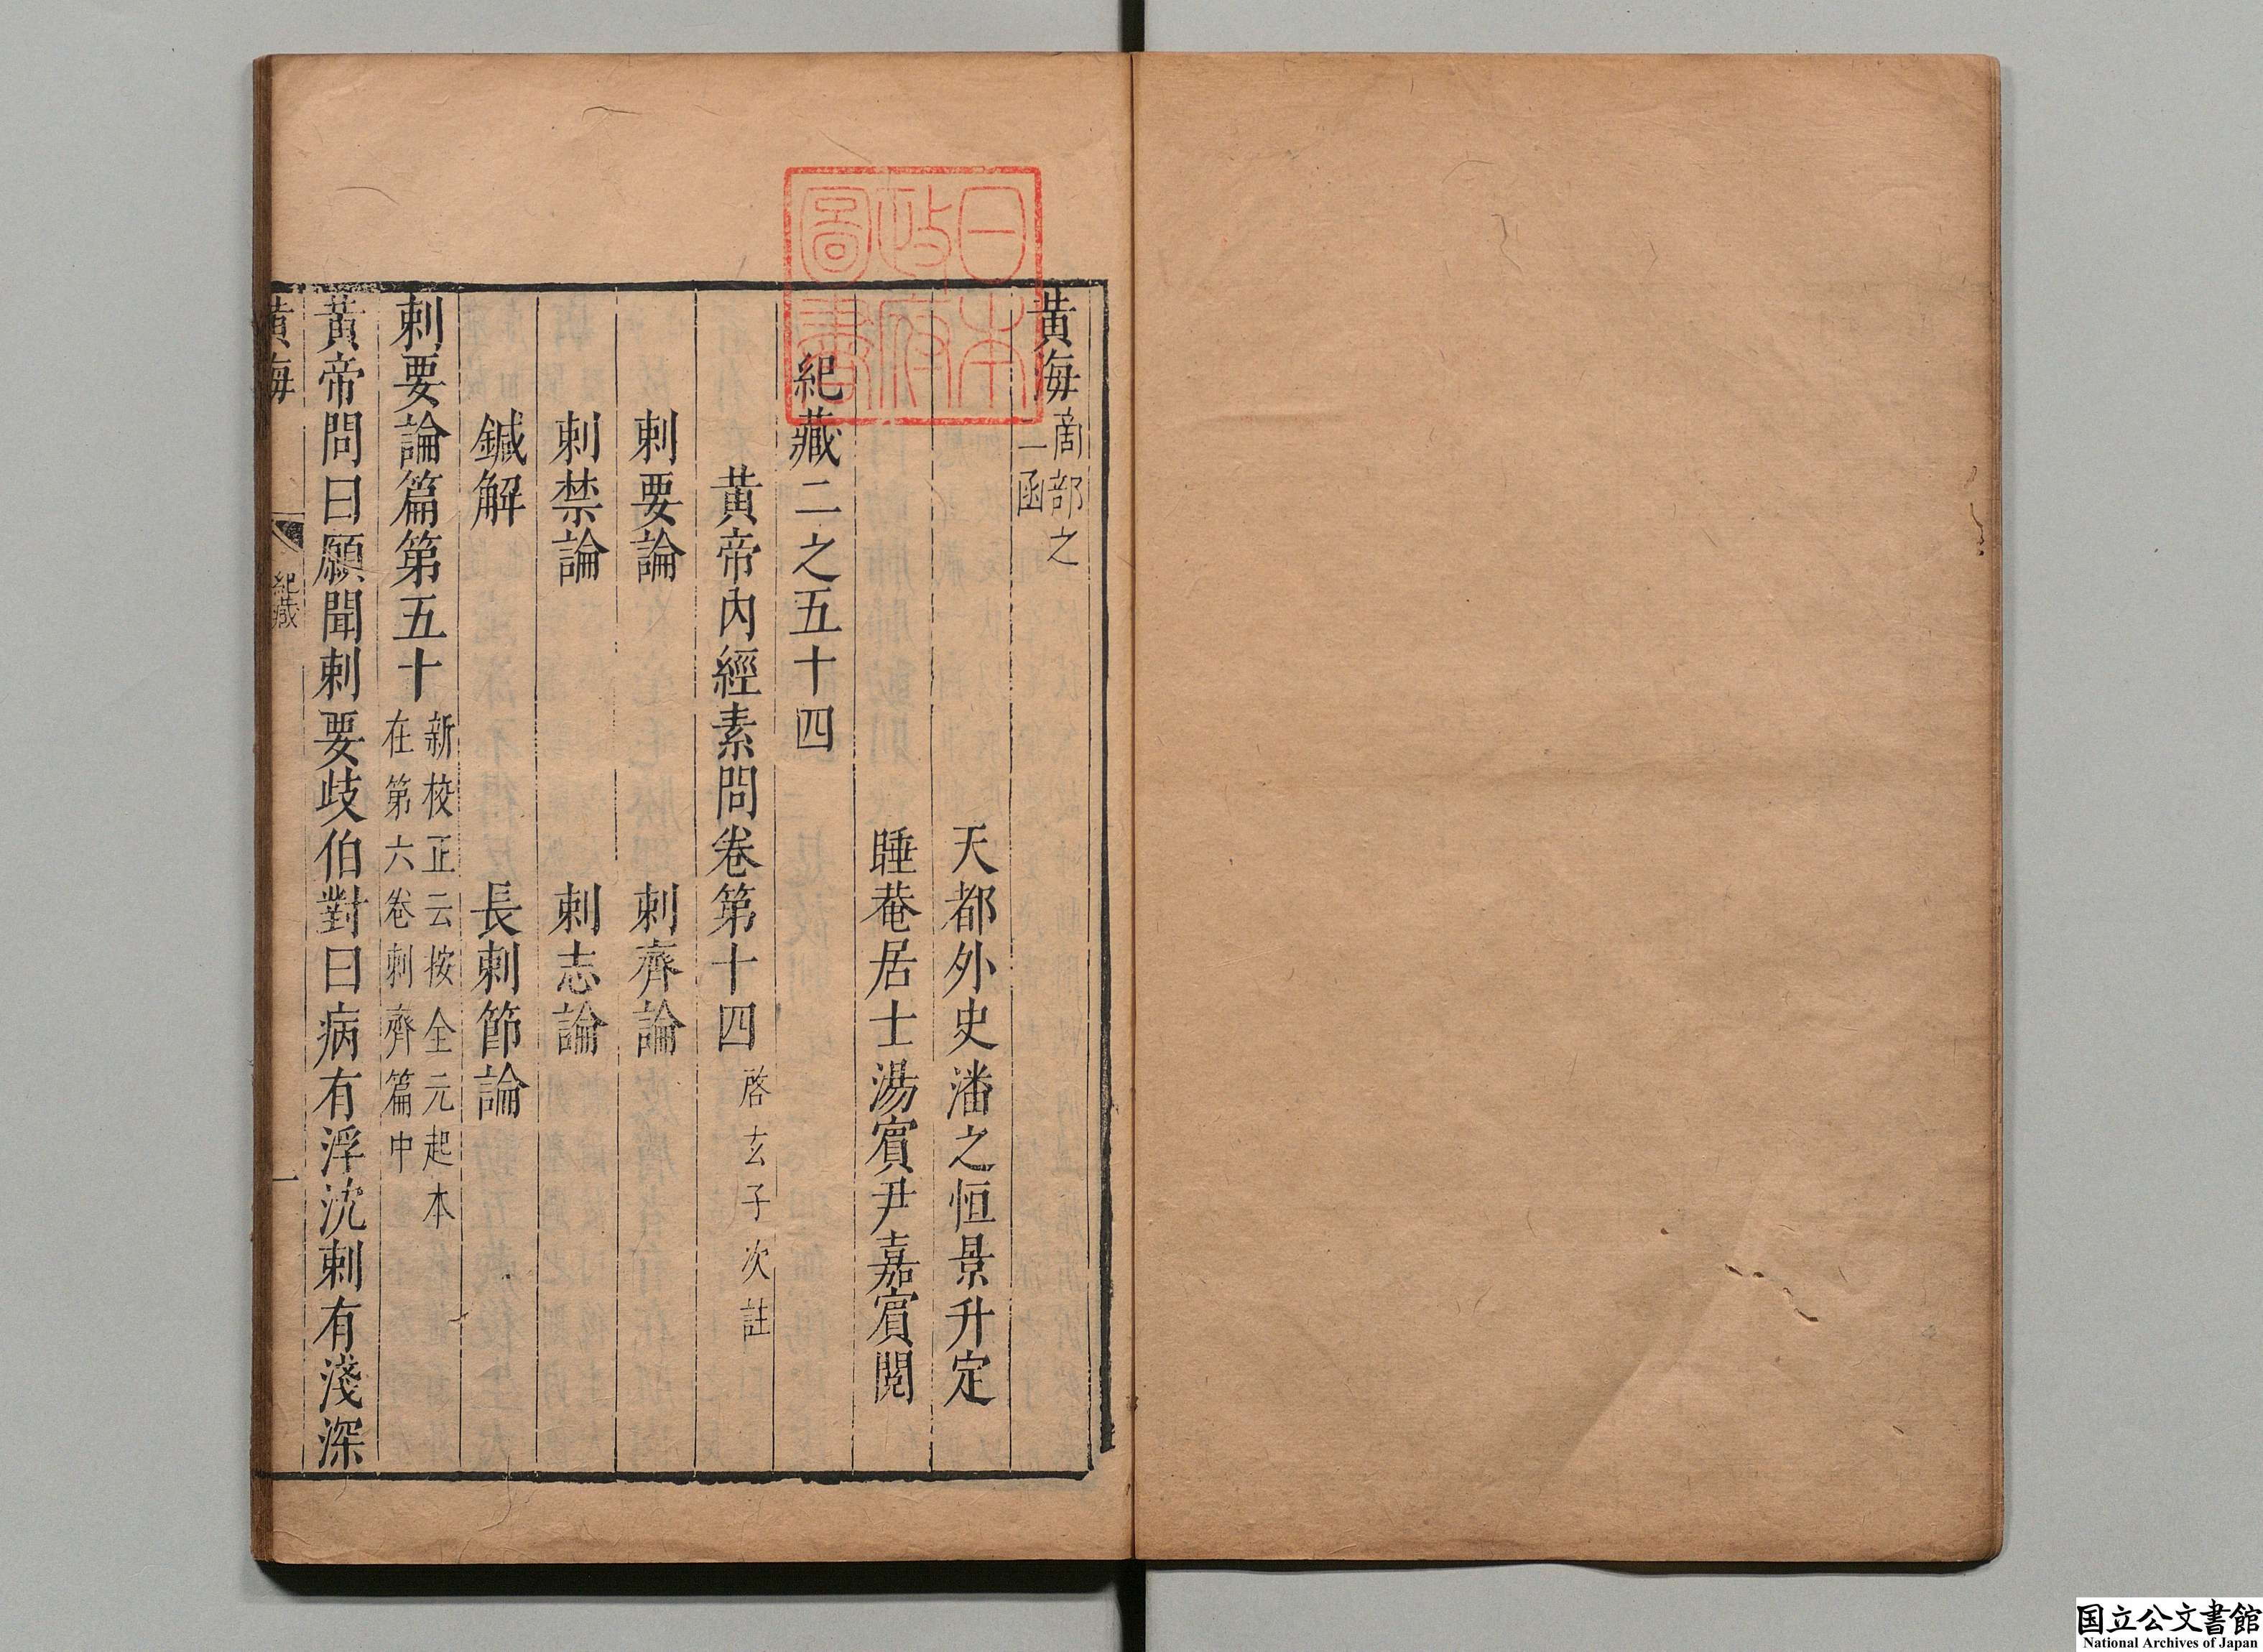 黃海商部之二函
天都外史潘之恒景升定
睡菴居士湯賓尹嘉賓閱
紀藏二之五十四
黃帝內經素問卷第十四啓玄子次註
刺要論 刺齊論
刺禁論 刺志論
鍼解 長刺節論
刺要論篇第五十新校正云按全元起本在第六卷刺齊篇中
黃帝問曰願聞刺要歧伯對曰病有浮沈刺有淺深
黃海 紀藏 一
日本政府圖書
国立公文書館
National Archives of Japan